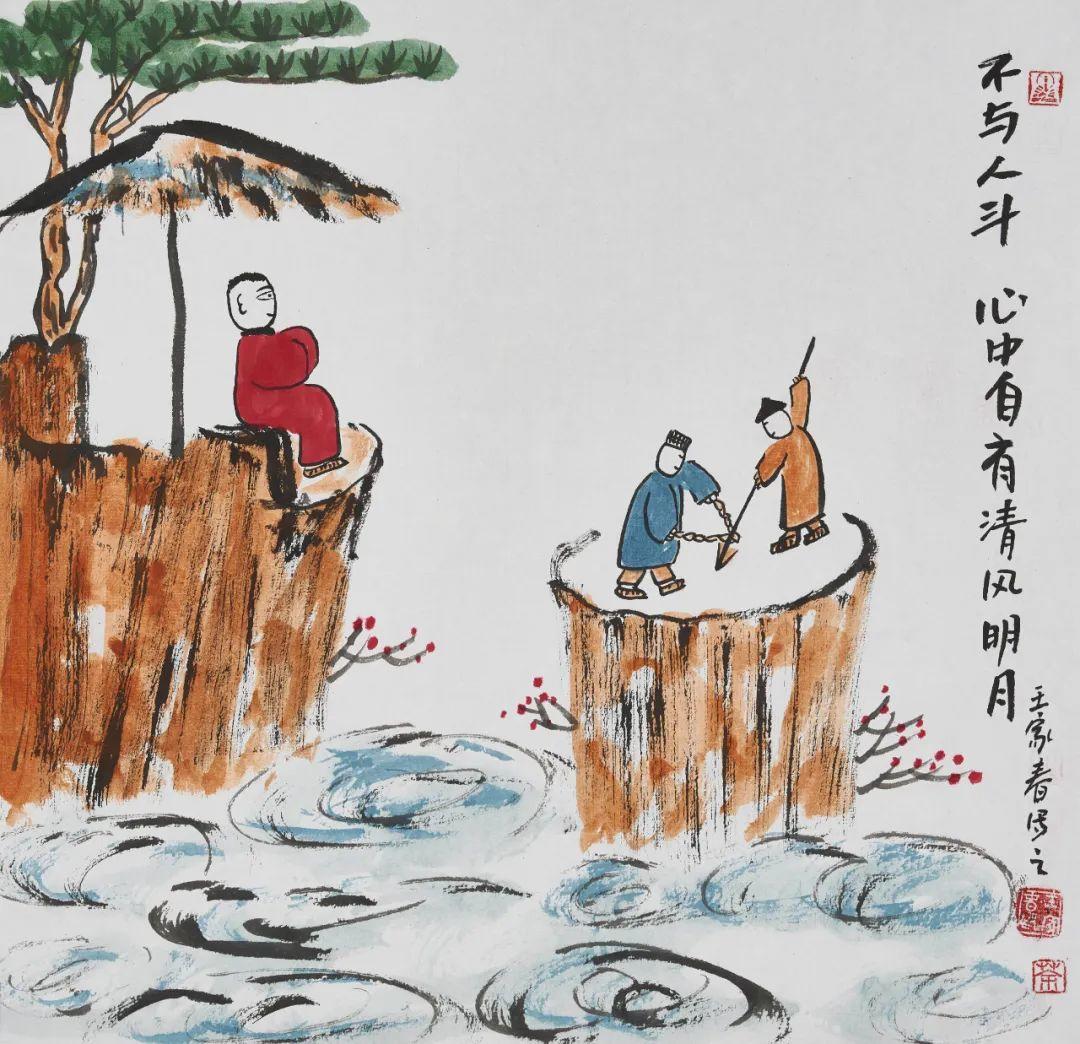 不与人斗 心中自有清风明月
王家春写之